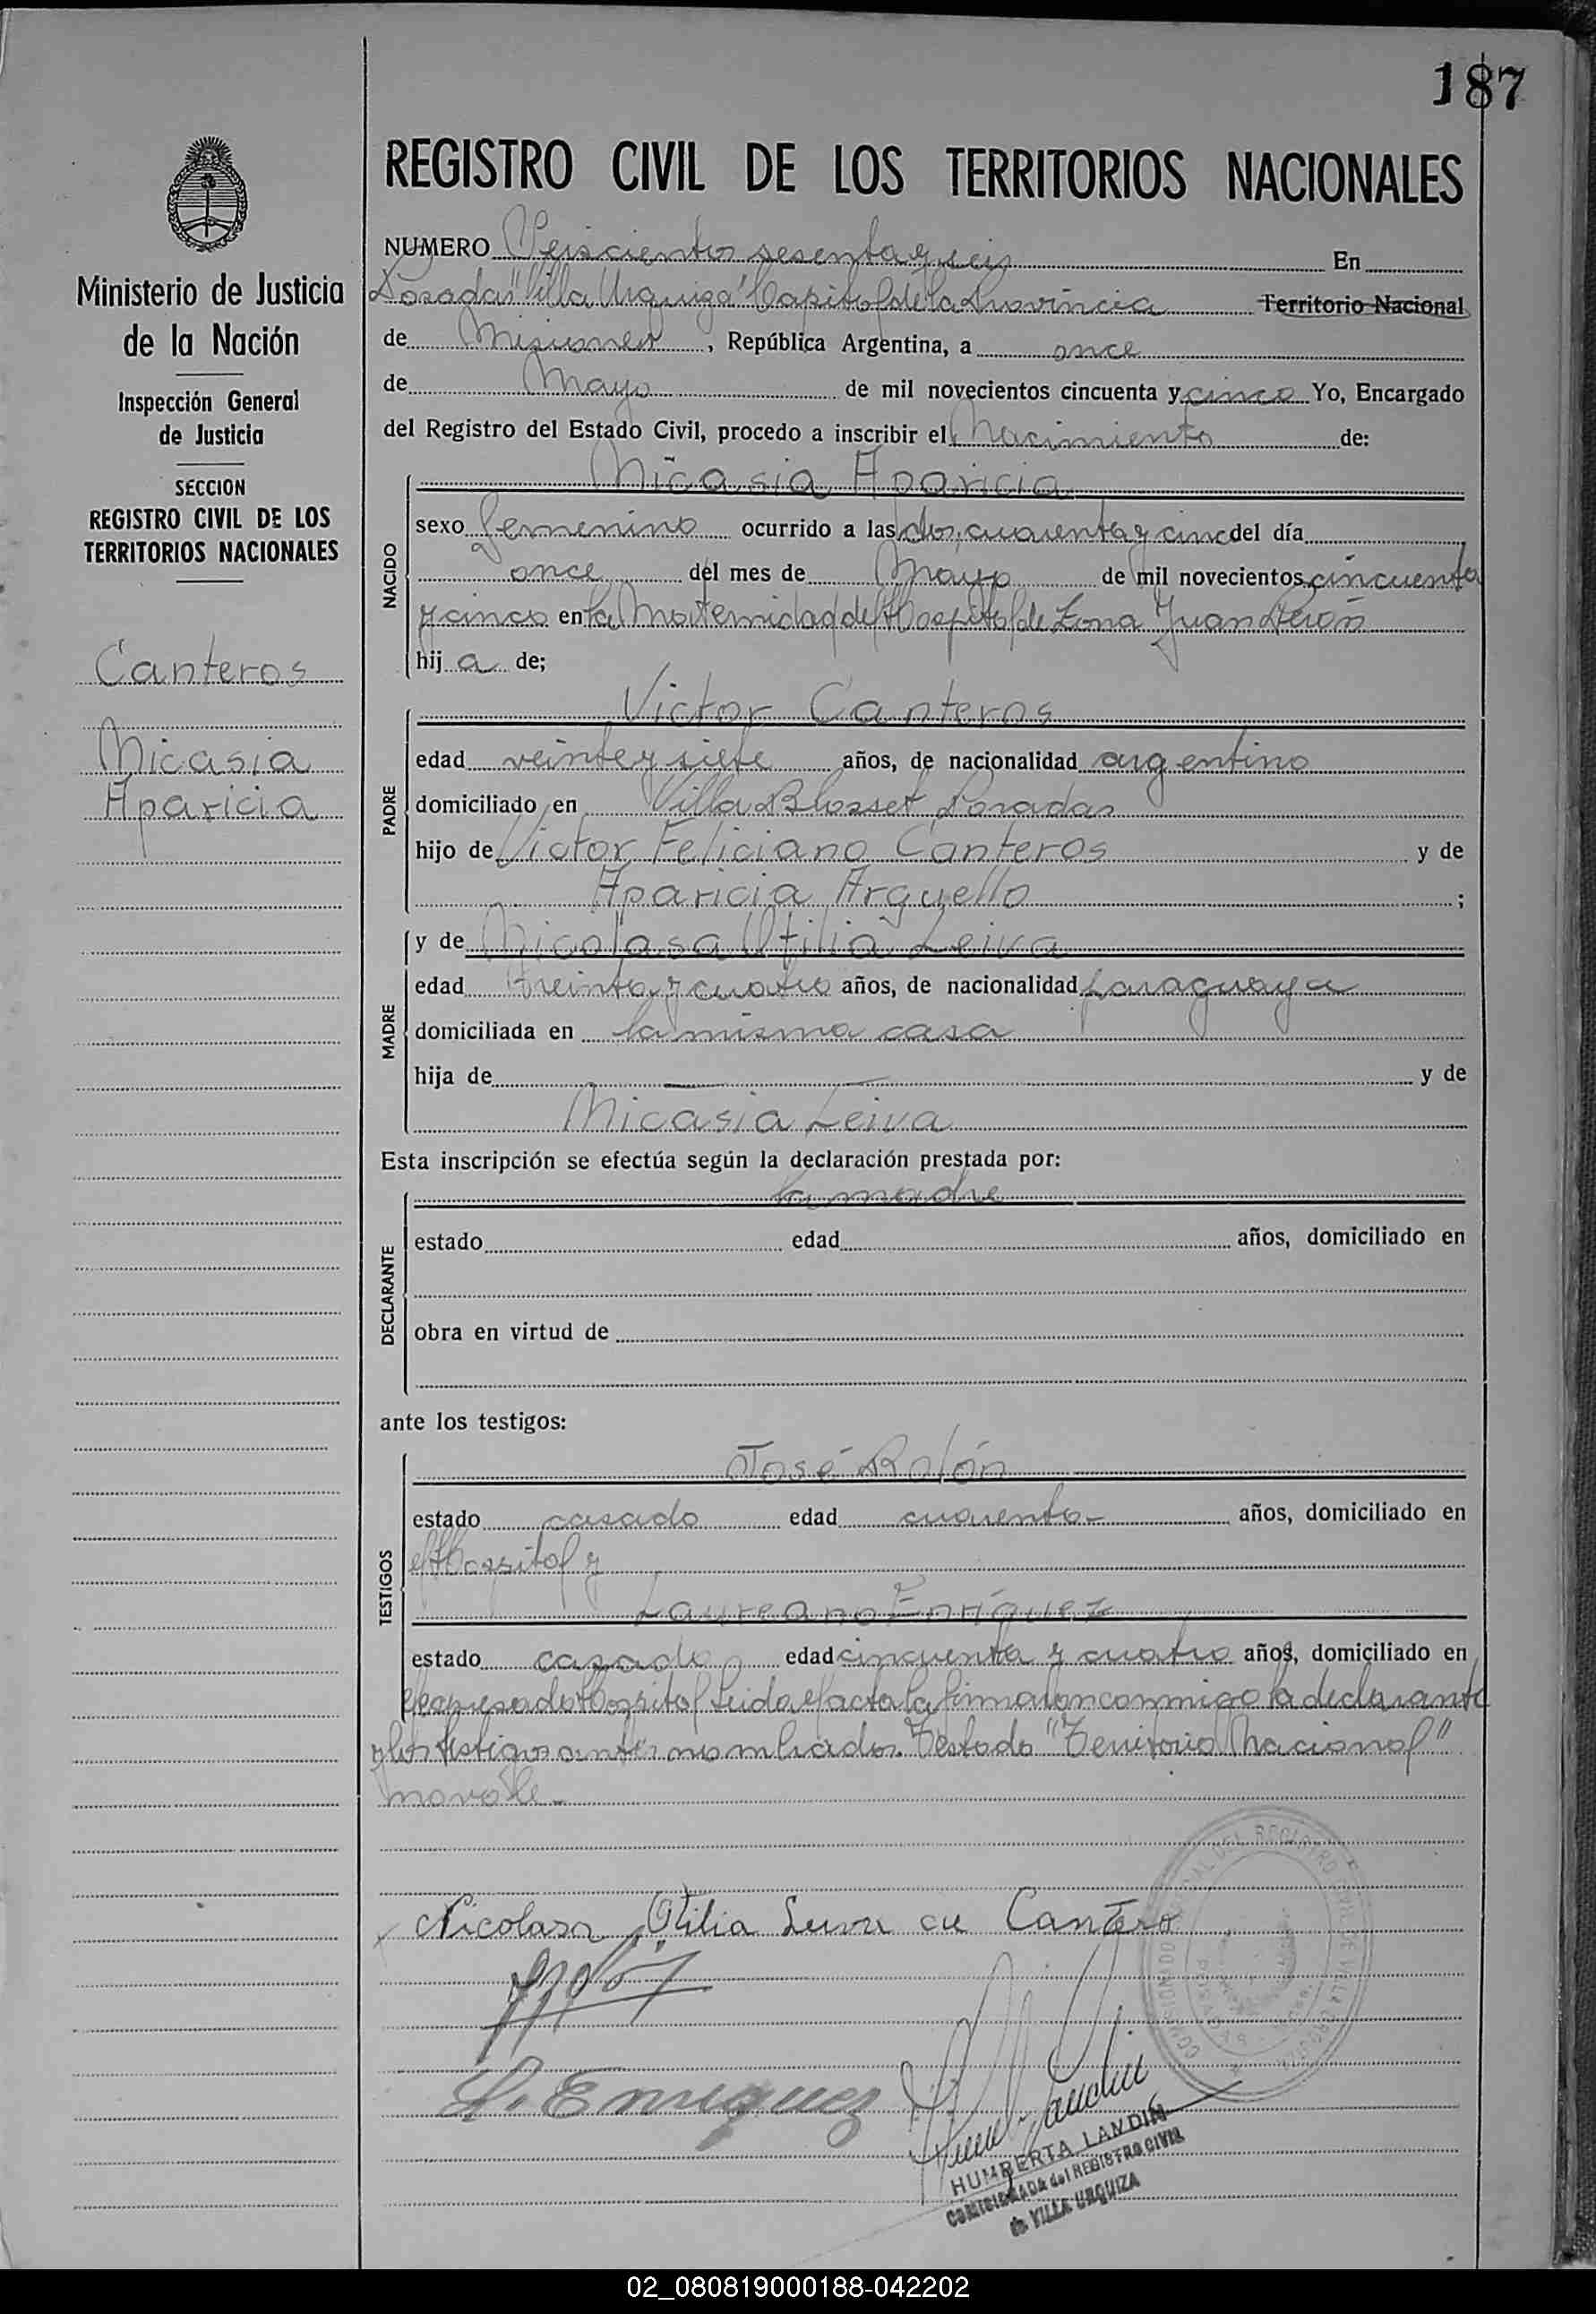 187
REGISTRO CIVIL DE LOS TERRITORIOS NACIONALES
Ministerio de Justicia
de la Nación
Inspección General
de Justicia
SECCION
REGISTRO CIVIL DE LOS
TERRITORIOS NACIONALES
Canteros
Micasia
Aparicia
NUMERO Seiscientos sesenta y seis En
Posadas "Villa Urquiza" Capital de la Provincia Territorio Nacional
de Misiones, República Argentina, a once
de Mayo de mil novecientos cincuenta y cinco Yo, Encargado
del Registro del Estado Civil, procedo a inscribir el Nacimiento de:
NACIDO
Micasia Aparicia
sexo femenino ocurrido a las dos, cuarenta y cinco del día
once del mes de Mayo de mil novecientos cincuenta
y cinco en la Maternidad del Hospital de Zona Juan Perón
hij a de;
PADRE
Victor Canteros
edad veinte y siete años, de nacionalidad argentino
domiciliado en Villa Blosset Posadas
hijo de Victor Feliciano Canteros y de
Aparicia Arguello ;
MADRE
y de Nicolasa Otilia Leiva
edad treinta y cuatro años, de nacionalidad paraguaya
domiciliada en la misma casa
hija de — y de
Micasia Leiva
Esta inscripción se efectúa según la declaración prestada por:
DECLARANTE
la madre
estado edad años, domiciliado en
obra en virtud de
ante los testigos:
TESTIGOS
José Rolón
estado casado edad cuarenta - años, domiciliado en
el Hospital y
Laureano Enríquez
estado casado edad cincuenta y cuatro años, domiciliado en
el expresado Hospital Leida el acta la firmaron conmigo la declarante
y los testigos antes nombrados. Testado "Territorio Nacional"
no vale.-
Nicolasa Otilia Leiva de Cantero
L. Enriquez
HUMBERTA LANDIN
COMISIONADA del REGISTRO CIVIL
de VILLA URQUIZA
02_080819000188-042202